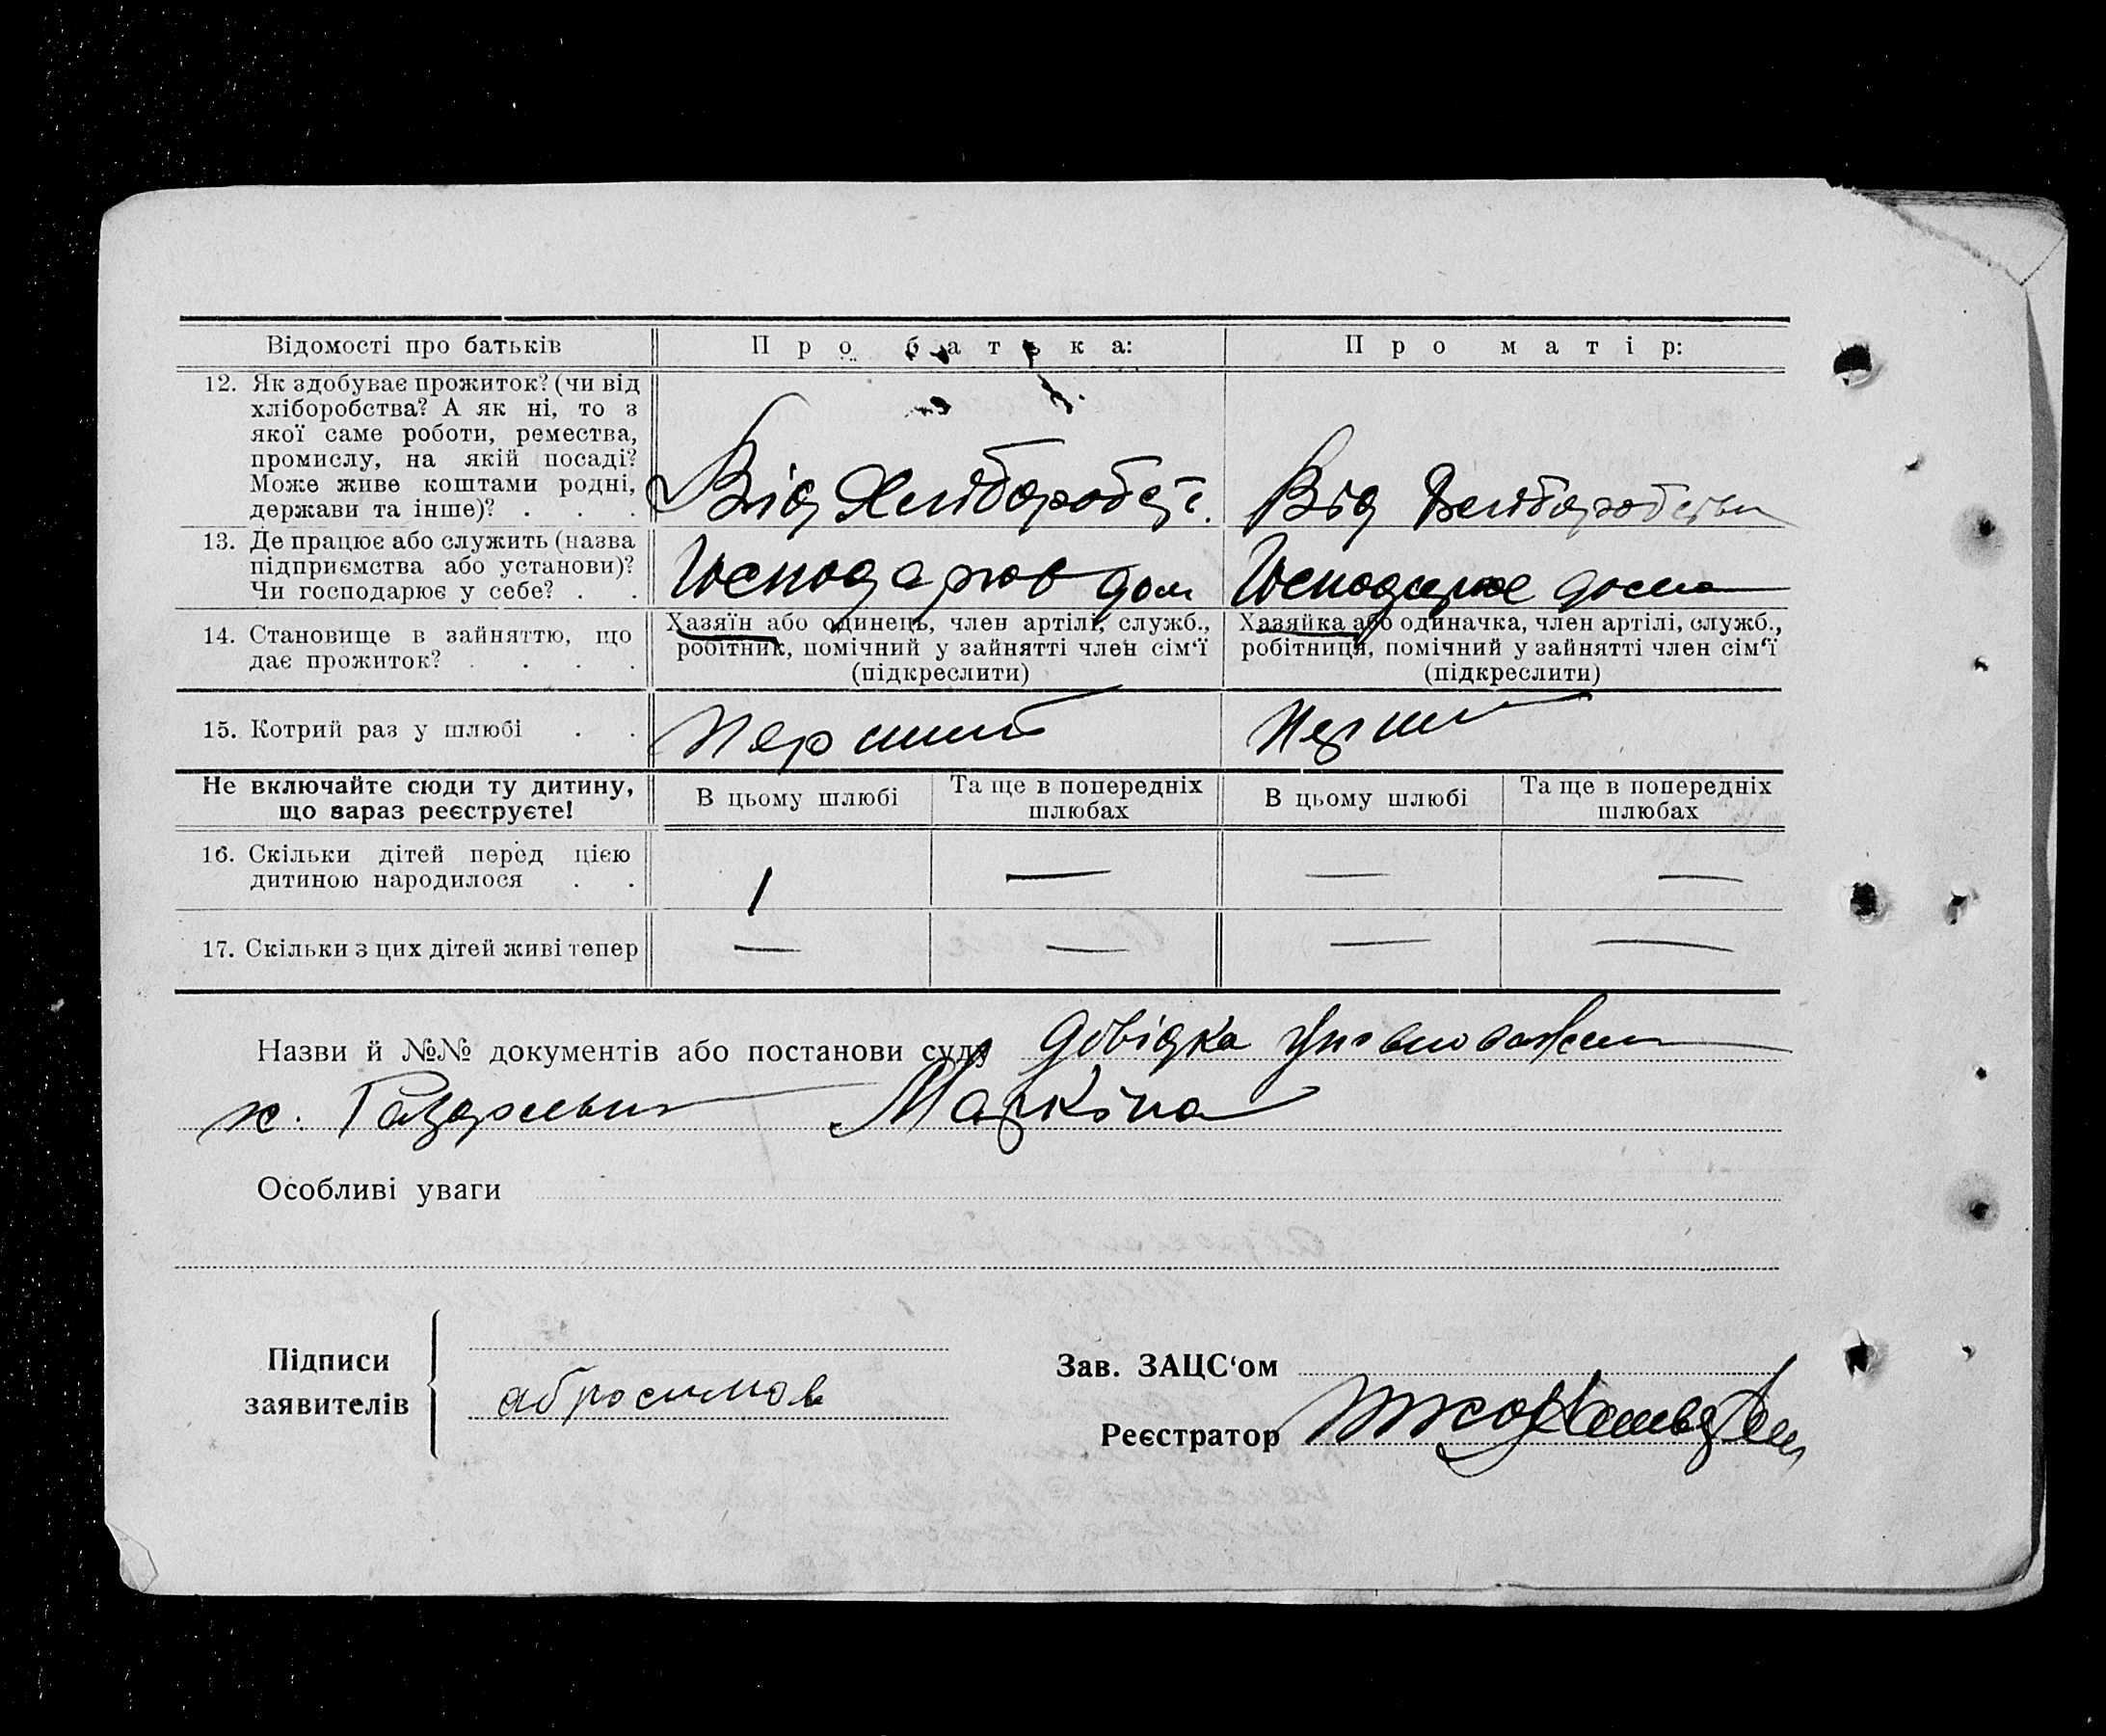 Відомості про батьків
Про батька:
Про матір:
12. Як здобуває прожиток? (чи від
хліборобства? А як ні, то з
якої саме роботи, ремества,
промислу, на якій посаді?
Може живе коштами родні,
держави та інше)? . . .
Від Хліборобст.
Від Хліборобства
13. Де працює або служить (назва
підприємства або установи)?
Чи господарює у себе? . .
Господарює дом
Господарює дома
14. Становище в зайняттю, що
дає прожиток? . . . .
Хазяїн або одинець, член артілі, служб.,
робітник, помічний у зайнятті член сім‘ї
(підкреслити)
Хазяйка або одиначка, член артілі, служб.,
робітниця, помічний у зайнятті член сім‘ї
(підкреслити)
15. Котрий раз у шлюбі . .
Перший
Перший
Не включайте сюди ту дитину,
що зараз реєструєте!
В цьому шлюбі
Та ще в попередніх
шлюбах
В цьому шлюбі
Та ще в попередніх
шлюбах
16. Скільки дітей перед цією
дитиною народилося . .
1 — — —
17. Скільки з цих дітей живі тепер
— — — —
Назви й №№ документів або постанови суду довідка
х. Маркіна
Особливі уваги
Підписи
заявителів
абросимов
Зав. ЗАЦС‘ом
Реєстратор